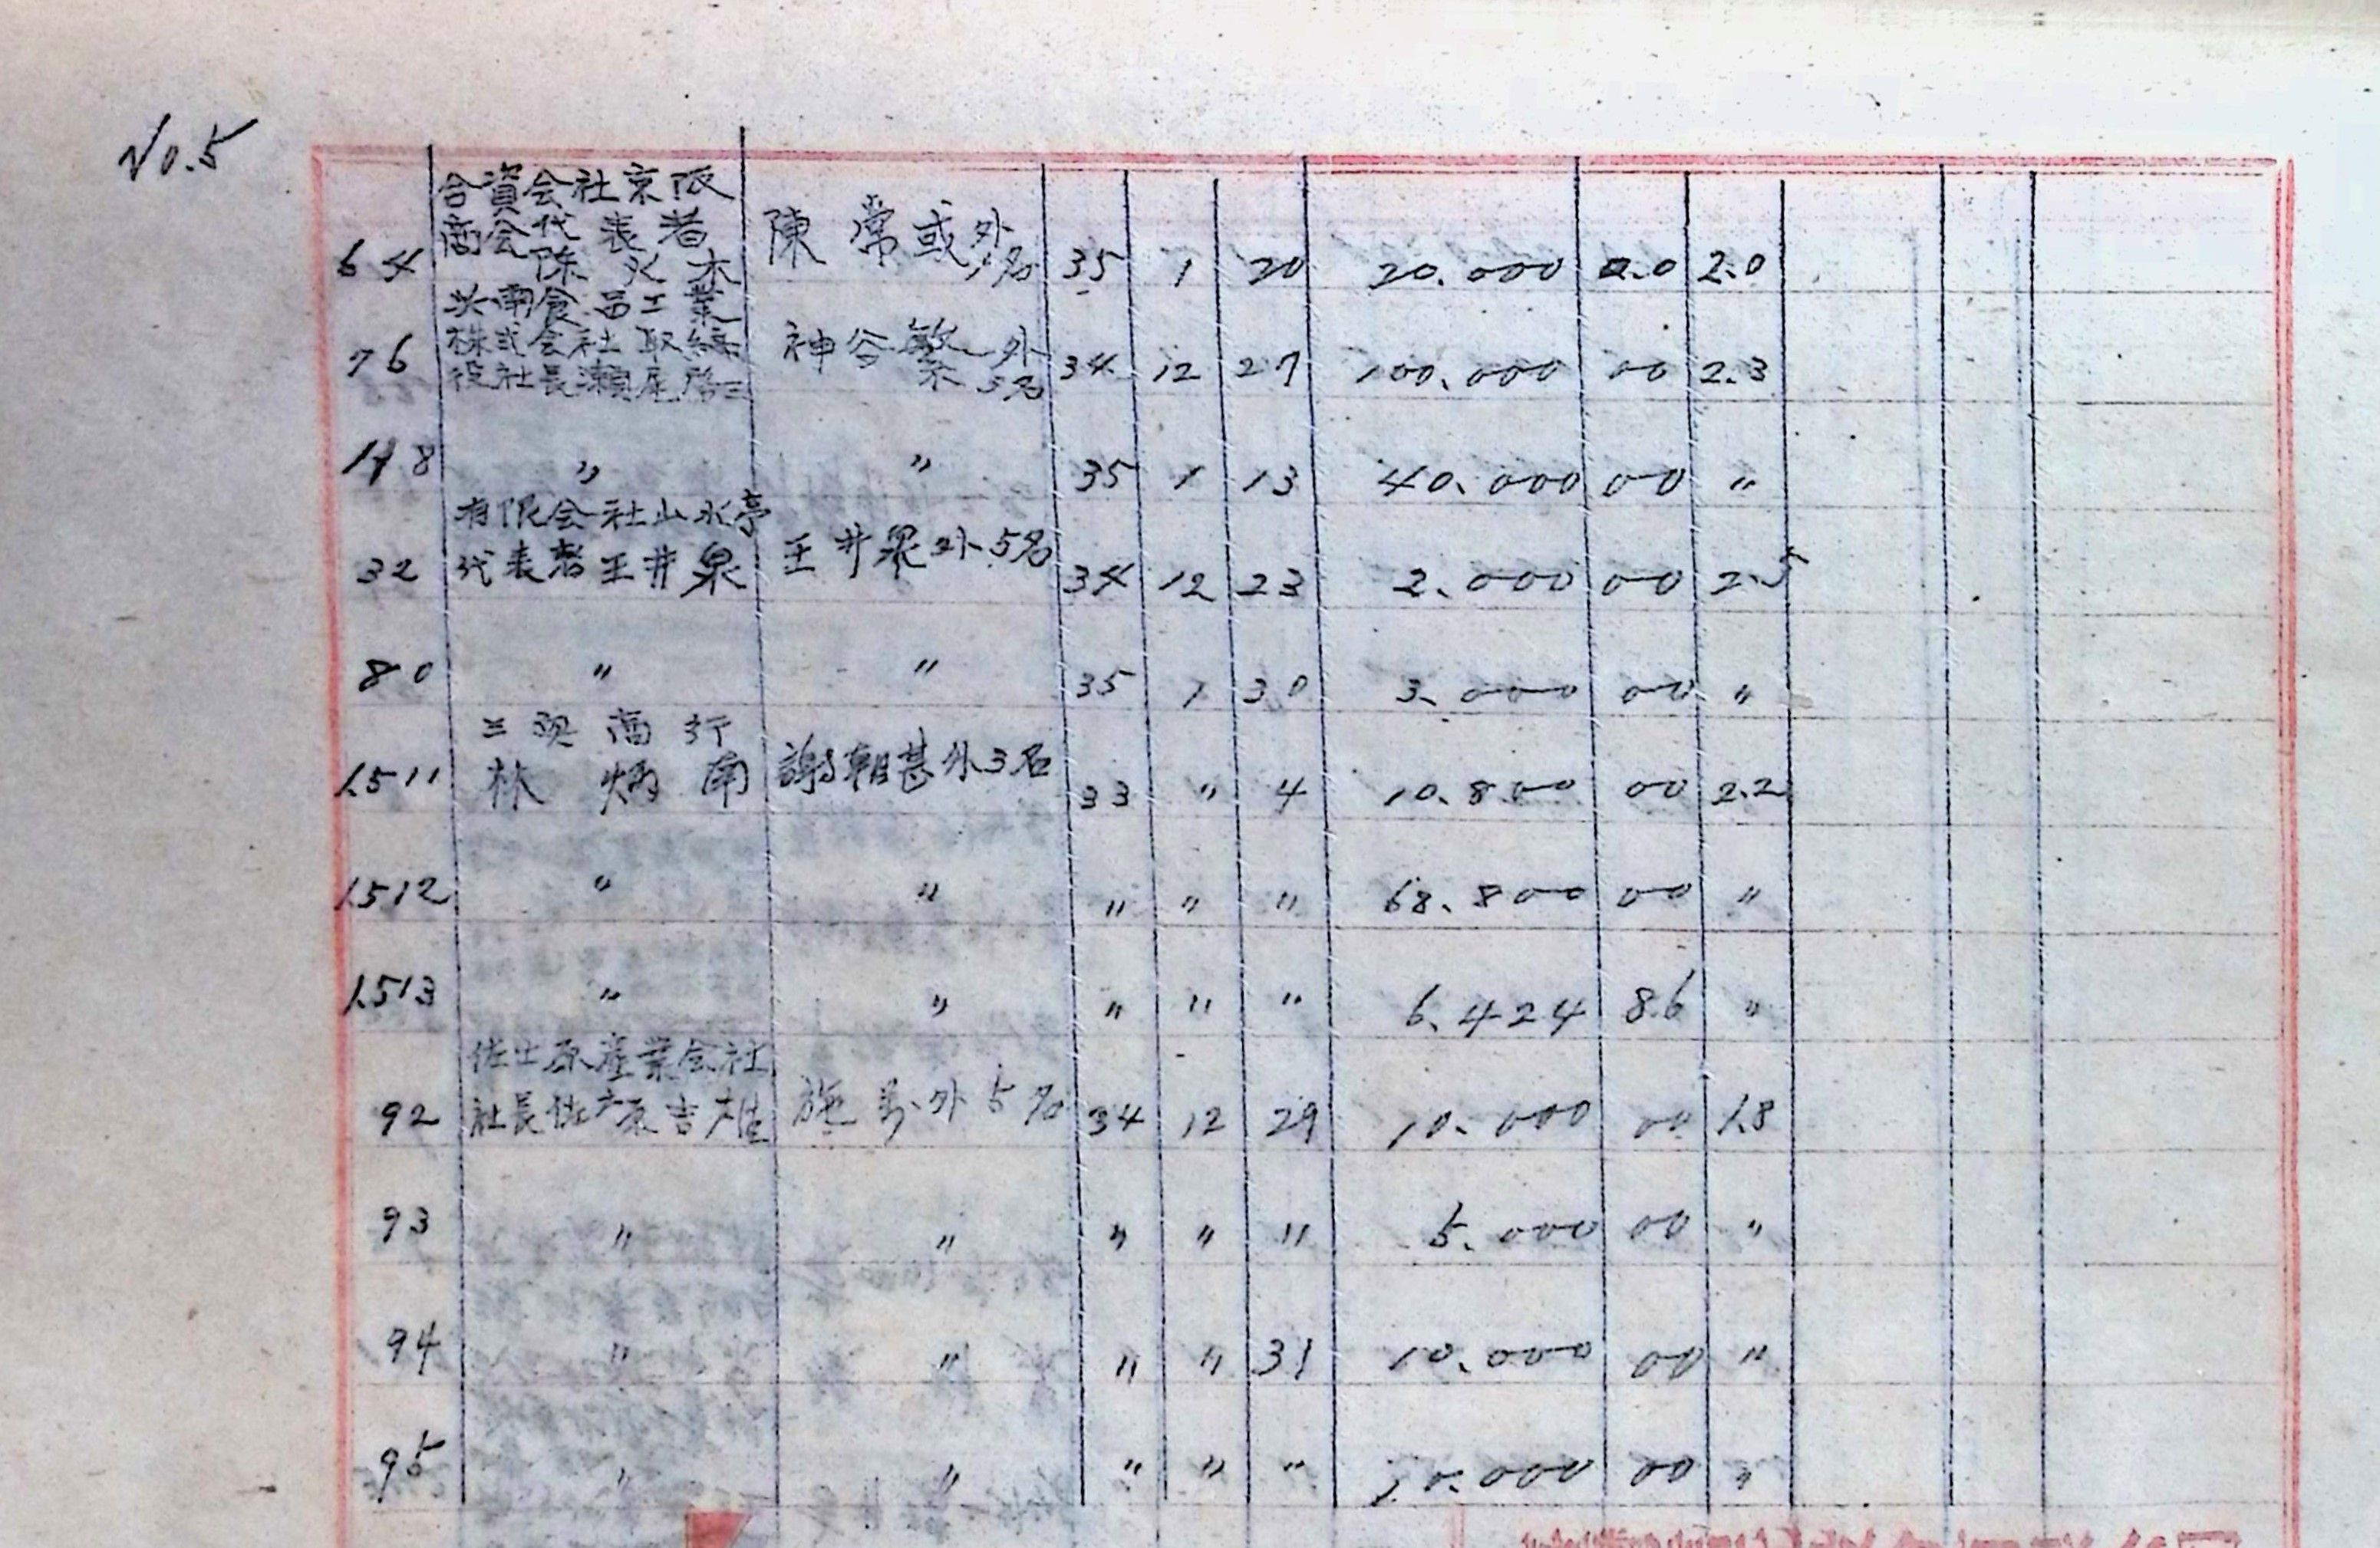 No.5
64 合資会社京阪商会代表者陳火木 陳常或外1名 35 1 20 20.000 0.0 2.0
76 南食品工業株式会社取締役社長瀬尾啓三 神谷繁一外3名 34 12 27 100.000 00 2.3
〃 〃 35 1 13 40.000 00 〃
32 有限会社山水亭代表者王井泉 王井泉外5名 34 12 23 2.000 00 2.5
80 〃 〃 35 1 30 3.000 00 〃
1.511 商行林炳南 謝朝甚外3名 33 〃 4 10.800 00 2.2
1.512 〃 〃 〃 〃 〃 68.800 00 〃
1.513 〃 〃 〃 〃 〃 6.424 86 〃
92 佐土原産業会社社長佐土原吉雄 施 外5名 34 12 29 10.000 00 1.8
93 〃 〃 〃 〃 〃 5.000 00 〃
94 〃 〃 〃 〃 31 10.000 00 〃
95 〃 〃 〃 〃 〃 10.000 00 〃